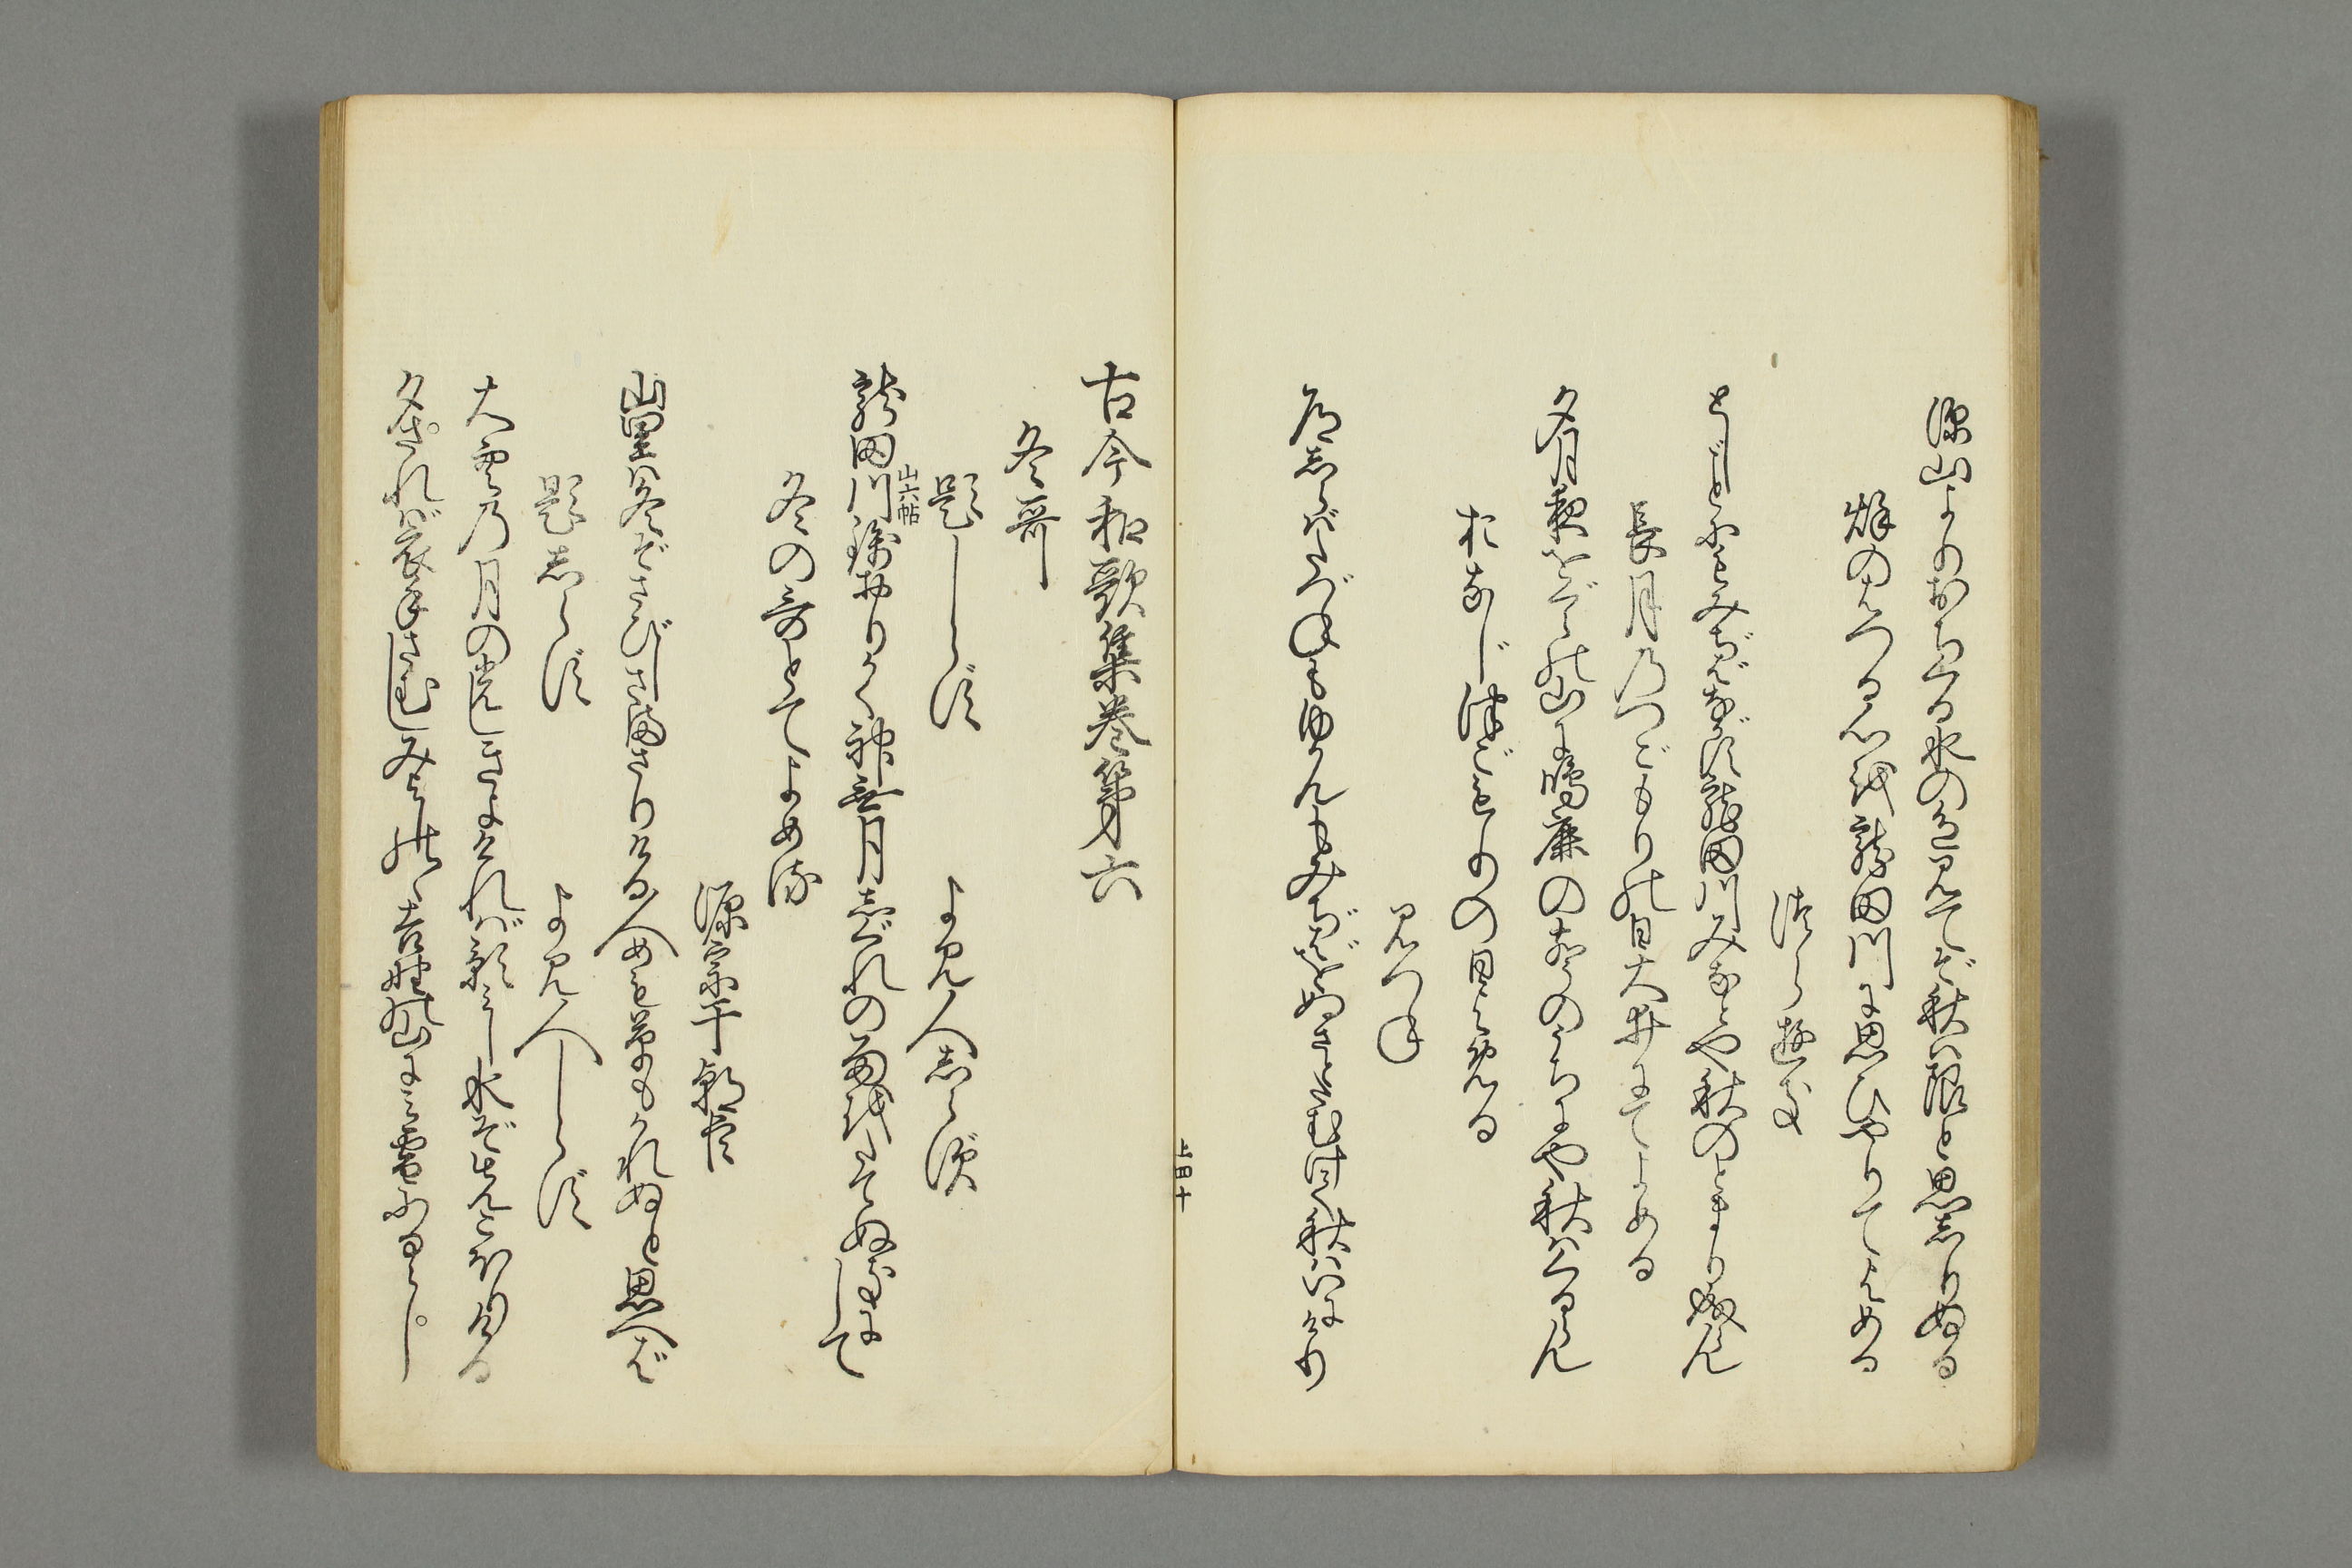 深山よりおちくる水の色見てぞ秋は限と思しりぬる
秌のはつる心を龍田川に思ひやりてよめる
つらゆき
としごとにもみぢばながす龍田川みなとや秋のとまり成らん
長月のつごもりの日大井にてよめる
夕月夜をぐらの山に鳴鹿のこゑのうちにや秋はくるらん
おなじつごもりの日よめる
みつね
道しらばたづねもゆかんもみぢばをぬさとたむけて秋はいにけり
上四十
古今和歌集巻第六
冬哥
題しらず　よみ人しらず
龍田川錦おりかく神無月しぐれの雨をたてぬきにして
山六帖
冬の哥とてよめる
源宗于朝臣
山里は冬ぞさびしさまさりける人めも草もかれぬと思へば
題しらず　よみ人しらず
大空の月の光しきよければ影みし水ぞまづこほりける
夕されば衣手さむしみよしのの吉野の山にみ雪ふるらし